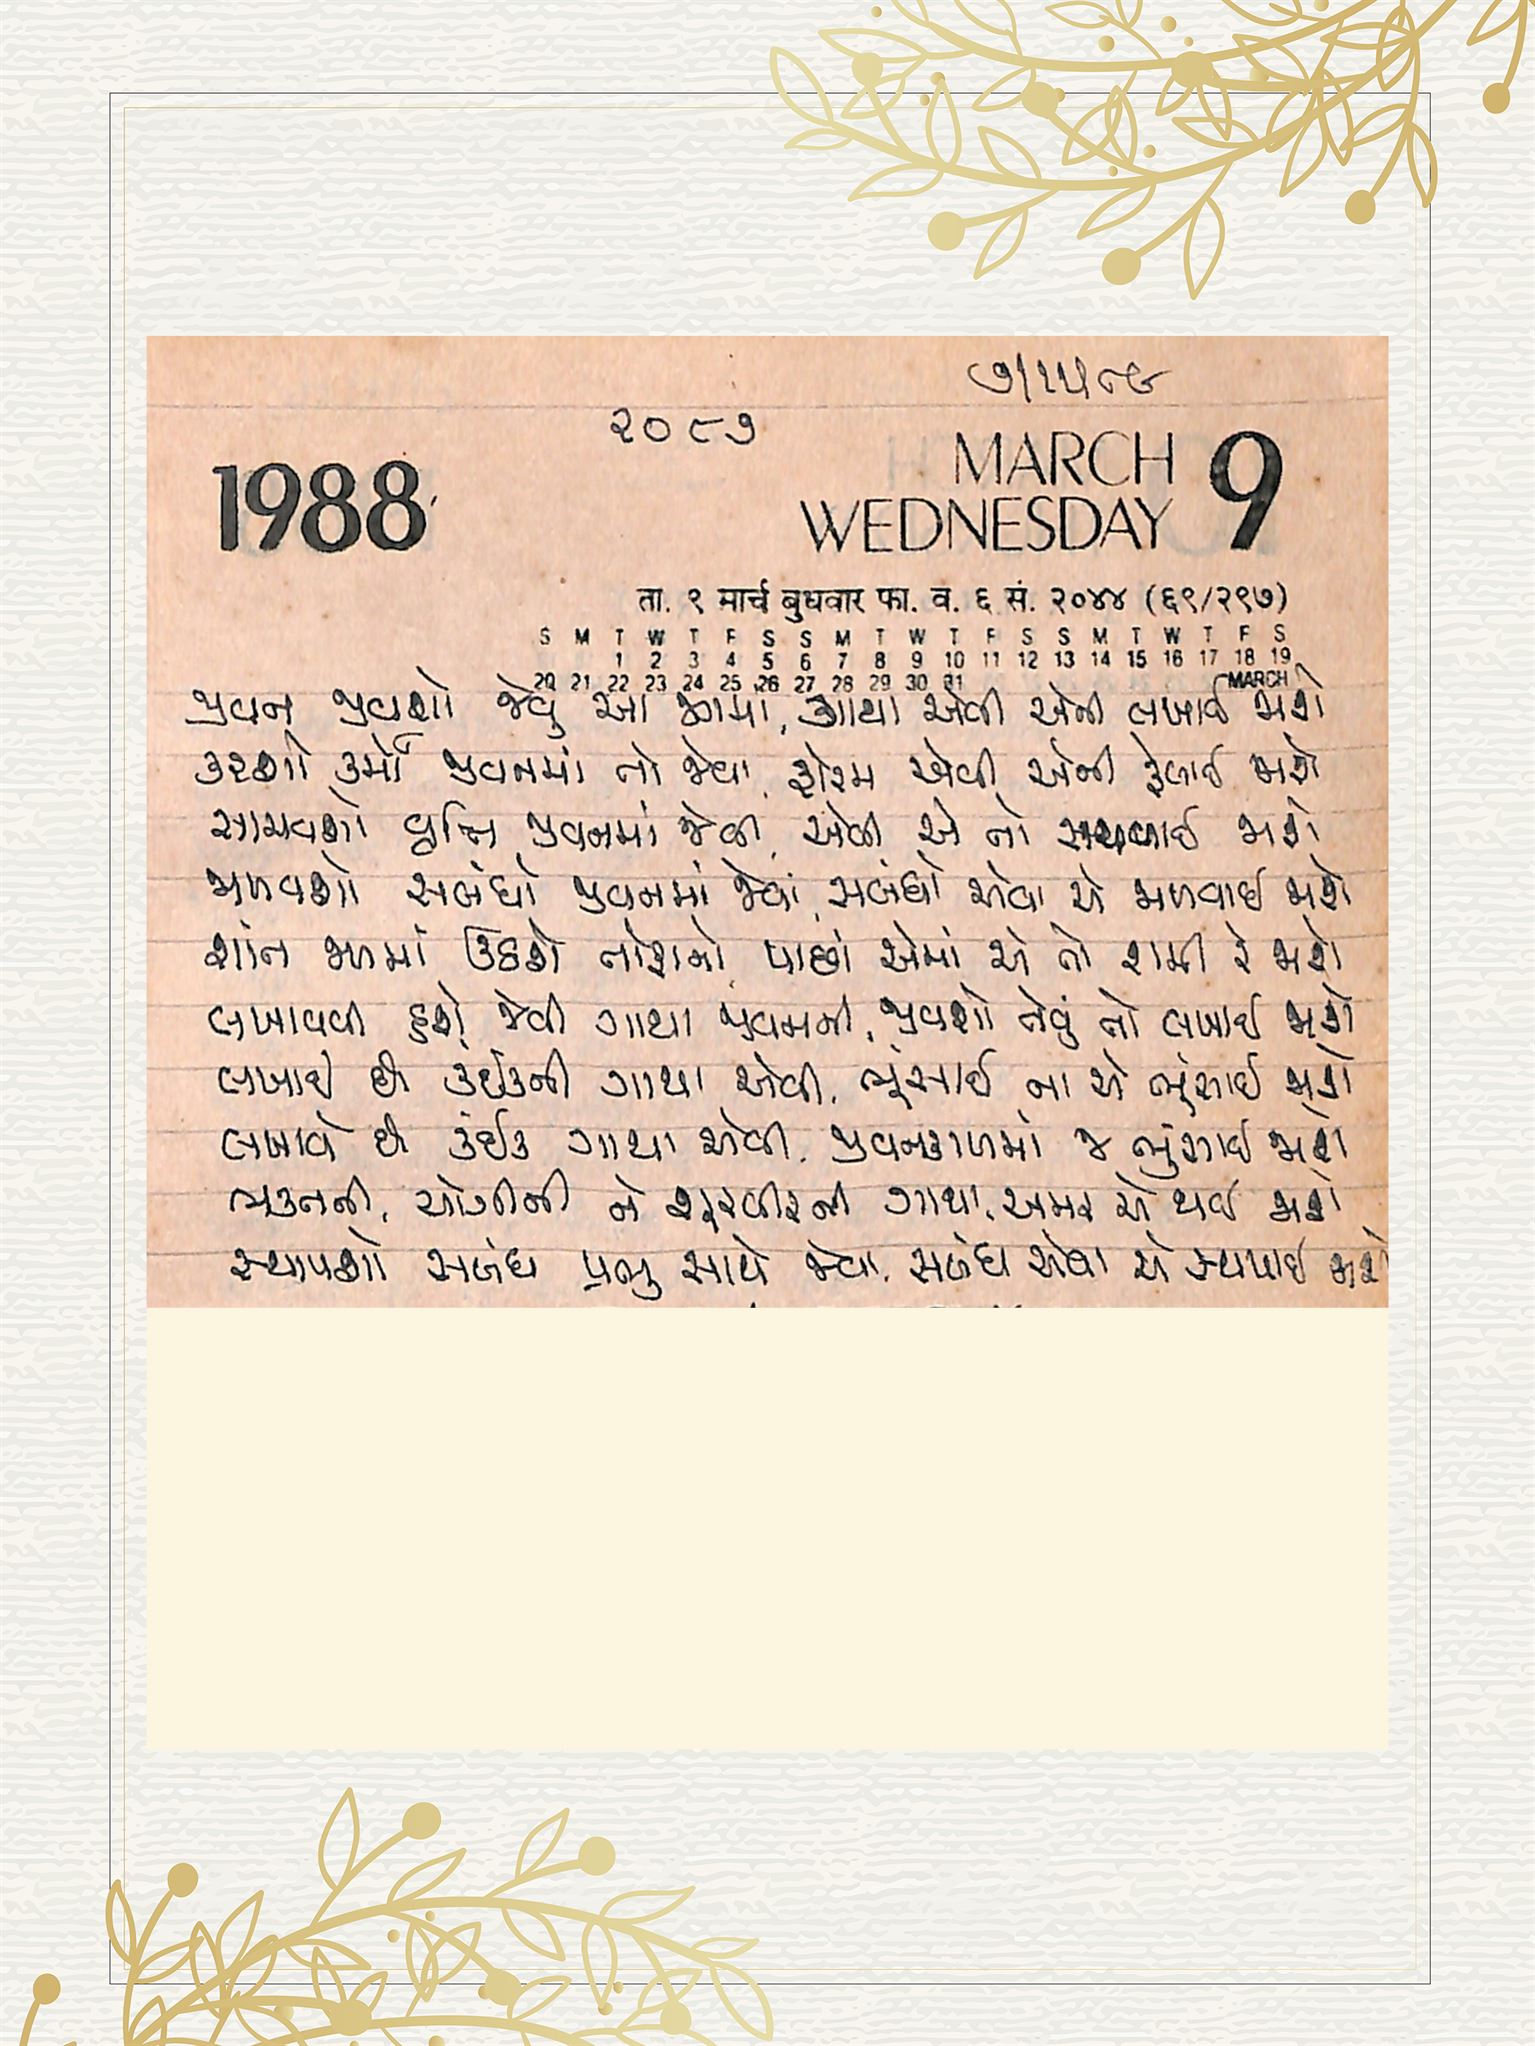 ૭/૧૫/૮૯
૨૦૮૭
1988
MARCH 9
WEDNESDAY
ता. ९ मार्च बुधवार फा. व. ६ सं. २०४४ (६९/२९७)
S M T W T F S S M T W T F S S M T W T F S
1 2 3 4 5 6 7 8 9 10 11 12 13 14 15 16 17 18 19
20 21 22 23 24 25 26 27 28 29 30 31 MARCH
જીવન જીવશો જેવું આ જગમાં, ગાથા એવી એની લખાઈ જાશે
કરશો કર્મો જીવનમાં તો જેવા, ફોરમ એવી એની ફેલાઈ જાશે
સાચવશો વૃત્તિ જીવનમાં જેવી, એવી એ તો સચવાઈ જાશે
જાળવશો સબંધો જીવનમાં જેવાં, સબંધો એવા એ જળવાઈ જાશે
શાંત જળમાં ઊઠશે તોફાનો, પાછાં એમાં એ તો શમી રે જાશે
લખાવવી હશે જેવી ગાથા જીવનની, જીવશો તેવું તો લખાઈ જાશે
લખાઈ છે કંઈકની ગાથા એવી, ભૂંસાઈ ના એ ભૂંસાઈ જાશે
લખાવે છે કંઈક ગાથા એવી, જીવનકાળમાં જ ભુંસાઈ જાશે
ભક્તની, યોગીની ને શૂરવીરની ગાથા, અમર એ થઈ જાશે
સ્થાપશો સબંધ પ્રભુ સાથે જેવા, સબંધ એવા એ સ્થપાઈ જાશે